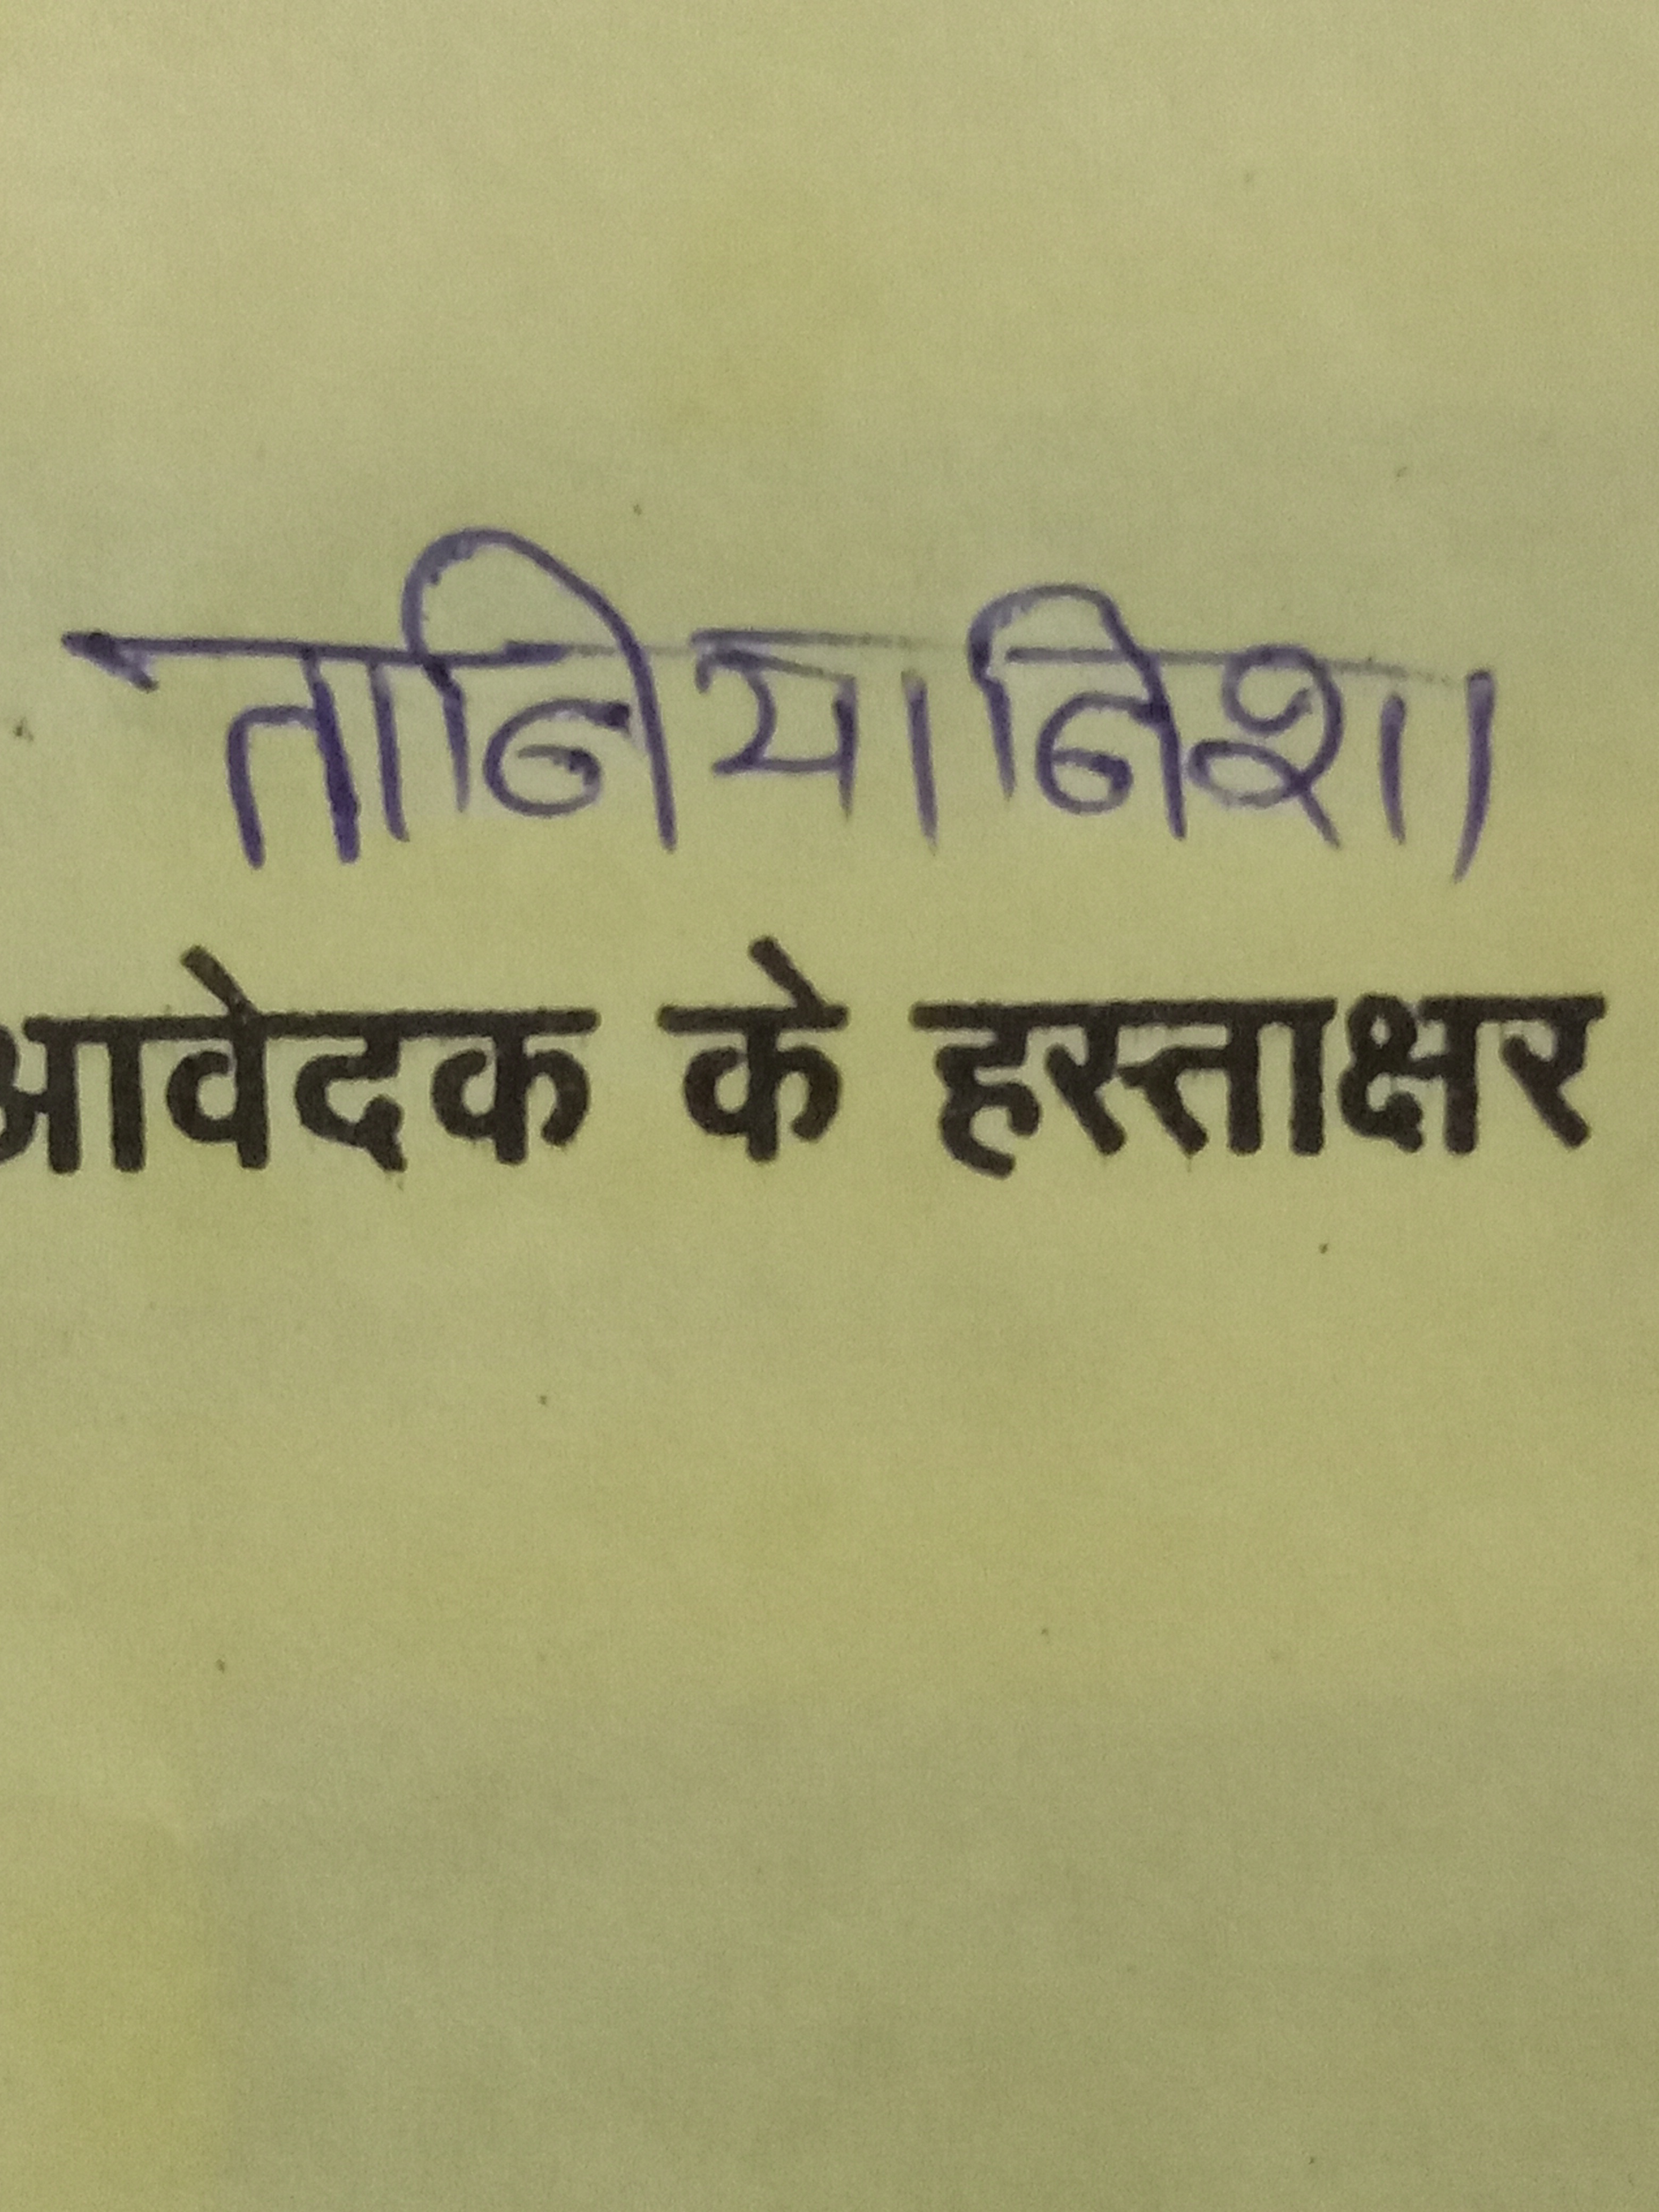 तानियानिशा
आवेदक के हस्ताक्षर